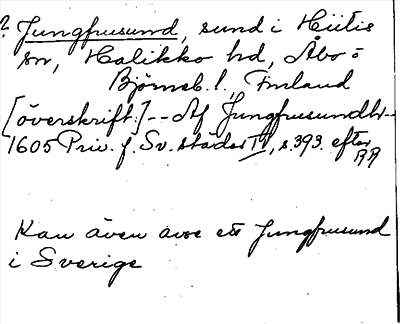 ? Jungfrusund, sund i Hiitis
sn, Halikko hd, Åbo o
Björneb. l., Finland
[överskrift:] -- Af Jungfrusundh --
1605 Priv. f. Sv. städer II, s. 393. efter
RA
Kan även avse ett Jungfrusund
i Sverige